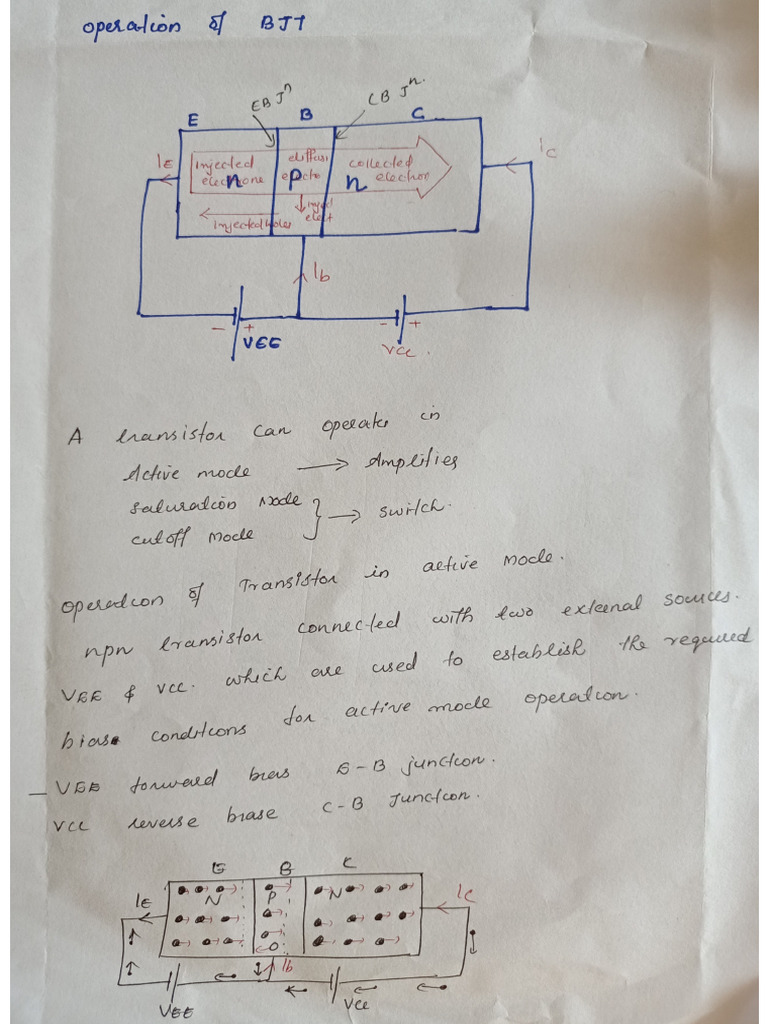 operation of BJT
EB Jn
CB Jn.
E
B
C
IE
IC
injected
diffusi
collected
electrone
n
P
n
electroe
injected holes
injed
elect
Ib
- +
- +
VEE
VCC.
A transistor can operate in
Active mode → Amplifies
saturation Mode } → switch.
cutoff Mode
operation of Transistor in active mode.
npn transistor connected with two external sources.
VEE & VCC. which are used to establish the required
bias conditions for active mode operation.
- VEE forward bias E-B junction.
VCC reverse biase C-B Junction.
E
B
C
IE
N
P
N
IC
Ib
VEE
VCC